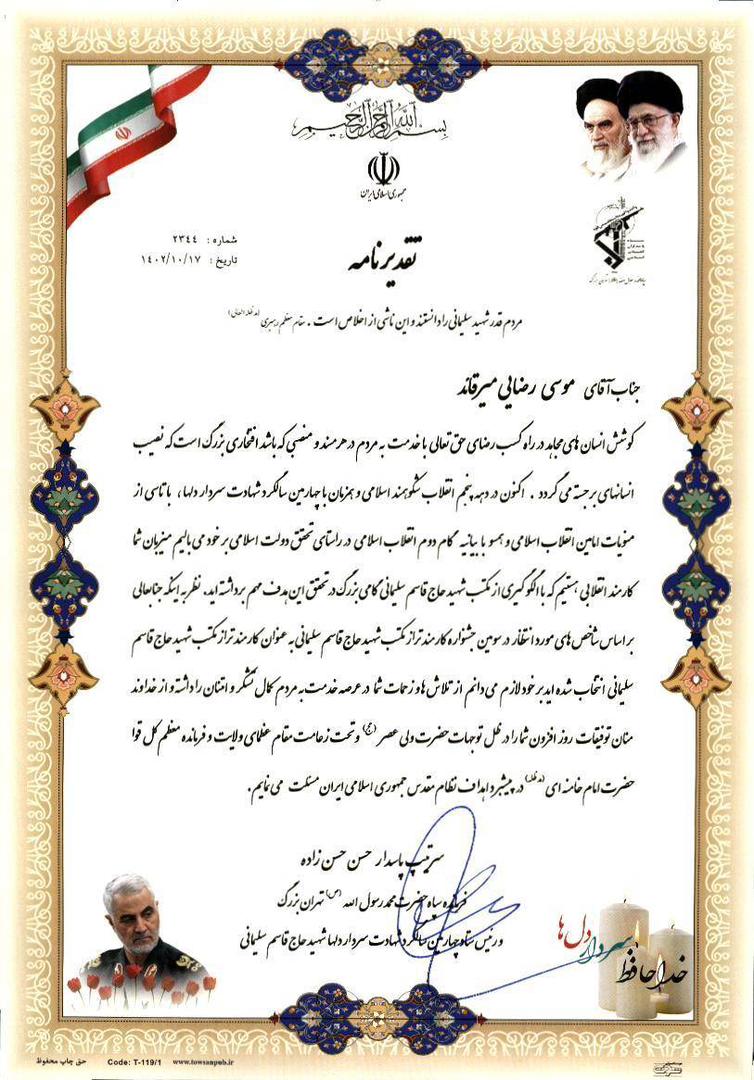 بسم الله الرحمن الرحیم
جمهوری اسلامی ایران
شماره : ۲۳۴۴
تاریخ : ۱۴۰۲/۱۰/۱۷
تقدیرنامه
مردم قدر شهید سلیمانی را دانستند و این ناشی از اخلاص است . مقام معظم رهبری (مدظله العالی)
جناب آقای موسی رضایی میرقائد
کوشش انسان های مجاهد در راه کسب رضای حق تعالی با خدمت به مردم در هر مسند و منصبی که باشد افتخاری بزرگ است که نصیب
انسانهای برجسته می گردد . اکنون در دهه پنجم انقلاب شکوهمند اسلامی و همزمان با چهارمین سالگرد شهادت سردار دلها، با تاسی از
منویات امامین انقلاب اسلامی و همسو با بیانیه گام دوم انقلاب اسلامی در راستای تحقق دولت اسلامی بر خود می بالیم میزبان شما
کارمند انقلابی هستیم که با الگو گیری از مکتب شهید حاج قاسم سلیمانی گامی بزرگ در تحقق این هدف مهم برداشته اید. نظر به اینکه جنابعالی
بر اساس شاخص های مورد انتظار در سومین جشنواره کارمند تراز مکتب شهید حاج قاسم سلیمانی به عنوان کارمند تراز مکتب شهید حاج قاسم
سلیمانی انتخاب شده اید بر خود لازم می دانم از تلاش ها و زحمات شما در عرصه خدمت به مردم کمال تشکر و امتنان را داشته و از خداوند
منان توفیقات روز افزون شما را در ظل توجهات حضرت ولی عصر (عج) و تحت زعامت مقام عظمای ولایت و فرمانده معظم کل قوا
حضرت امام خامنه ای (مدظله) در پیشبرد اهداف نظام مقدس جمهوری اسلامی ایران مسئلت می نمایم.
سرتیپ پاسدار حسن حسن زاده
فرمانده سپاه حضرت محمد رسول الله (ص) تهران بزرگ
و رئیس ستاد چهارمین سالگرد شهادت سردار دلها شهید حاج قاسم سلیمانی
خداحافظ سردار دل ها
حق چاپ محفوظ Code: T-119/1 www.towsanpub.ir